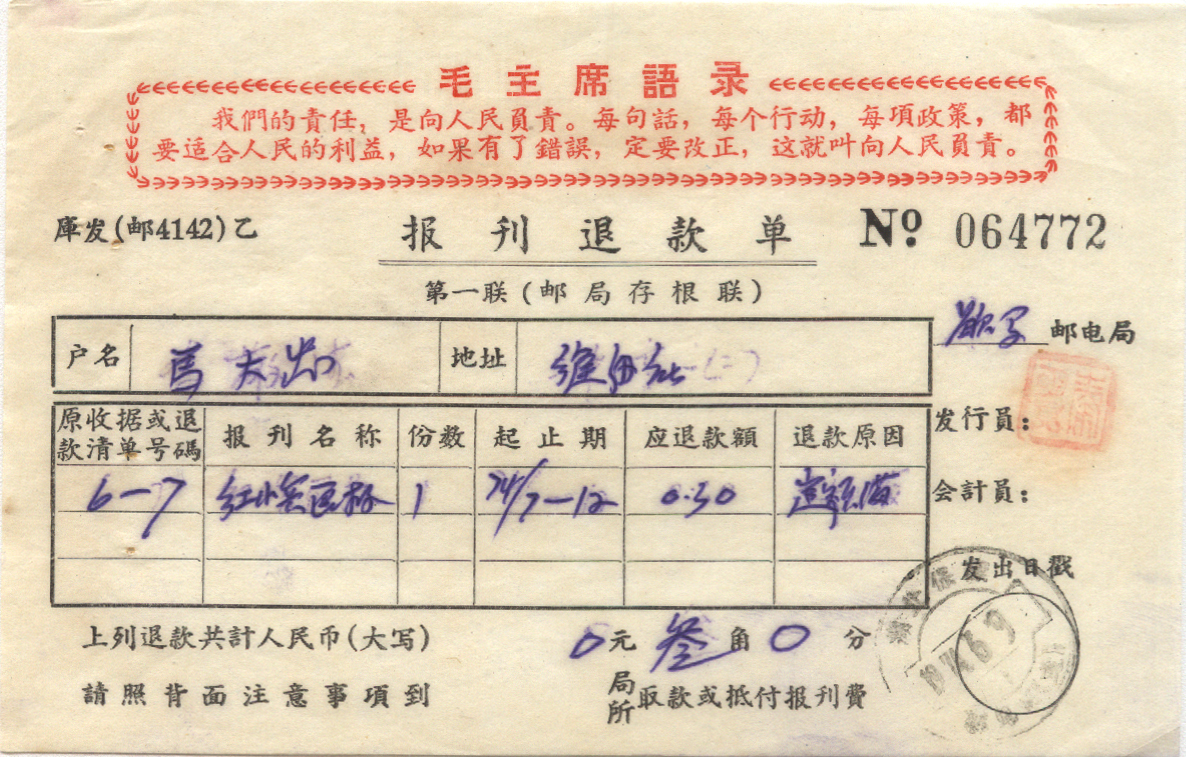 毛主席語录
我們的責任，是向人民負責。每句話，每个行动，每項政策，都
要适合人民的利益，如果有了錯誤，定要改正，这就叫向人民負責。
庫发(邮4142)乙 报刊退款单 Nº 064772
第一联(邮局存根联)
邮电局
户名 馬 地址 維
原收据或退款清单号碼 报刊名称 份数 起止期 应退款額 退款原因
6-7 红小兵 1 74/7-12 0.30
发行员：
会計員：
发出日戳
上列退款共計人民币(大写) 0元叁角0分
請照背面注意事項到局所取款或抵付报刊費